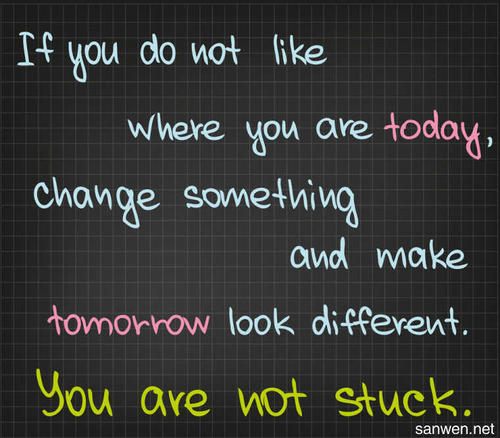 If you do not like
where you are today,
change something
and make
tomorrow look different.
You are not stuck.
sanwen.net